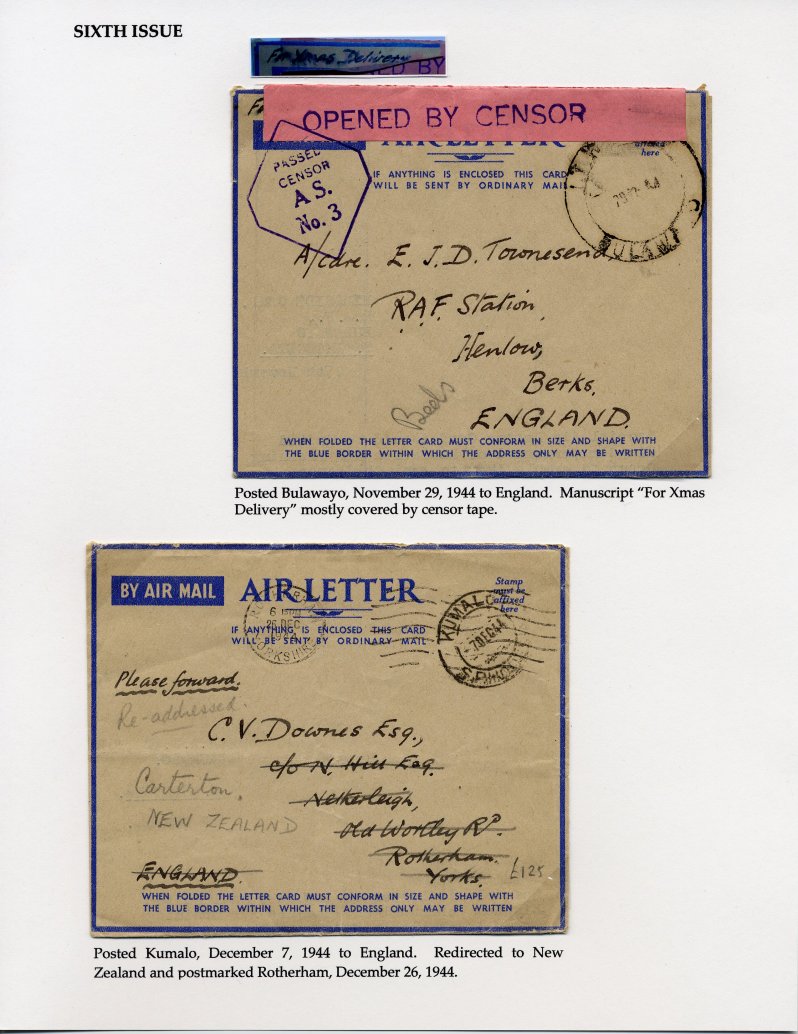 SIXTH ISSUE
For Xmas Delivery
OPENED BY CENSOR
AIR LETTER
here
IF ANYTHING IS ENCLOSED THIS CARD
WILL BE SENT BY ORDINARY MAIL
PASSED
CENSOR
A S.
No. 3
A/cdre. E. J. D. Townesend,
R.A.F. Station,
Henlow,
Berks,
Beds
ENGLAND.
WHEN FOLDED THE LETTER CARD MUST CONFORM IN SIZE AND SHAPE WITH
THE BLUE BORDER WITHIN WHICH THE ADDRESS ONLY MAY BE WRITTEN
Posted Bulawayo, November 29, 1944 to England. Manuscript “For Xmas
Delivery” mostly covered by censor tape.
BY AIR MAIL
AIR LETTER
Stamp
must be
affixed
here
6
26 DEC
YORKSHIRE
KUMALO
7 DEC 44
IF ANYTHING IS ENCLOSED THIS CARD
WILL BE SENT BY ORDINARY MAIL
Please forward.
Re-addressed.
C. V. Downes Esq.,
c/o N. Hill Esq.
Netherleigh,
Carterton,
NEW ZEALAND
Old Wortley Rd.
Rotherham.
Yorks.
£125
ENGLAND.
WHEN FOLDED THE LETTER CARD MUST CONFORM IN SIZE AND SHAPE WITH
THE BLUE BORDER WITHIN WHICH THE ADDRESS ONLY MAY BE WRITTEN
Posted Kumalo, December 7, 1944 to England. Redirected to New
Zealand and postmarked Rotherham, December 26, 1944.